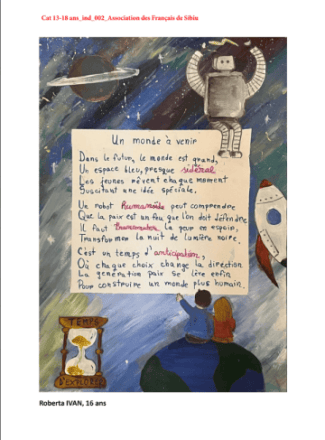 Cat 13-18 ans_ind_002_Association des Français de Sibiu
Un monde à venir
Dans le futur, le monde est grand,
Un espace bleu, presque sidéral
Les jeunes rêvent chaque moment
Suscitant une idée spéciale.
Un robot humanoïde peut comprendre
Que la paix est un feu que l'on doit défendre
Il faut transmuter la peur en espoir,
Transformer la nuit de lumière noire.
C'est un temps d'anticipation,
Où chaque choix change la direction
La génération paix se lève enfin
Pour construire un monde plus humain.
TEMPS
D'EXPLORER
Roberta IVAN, 16 ans